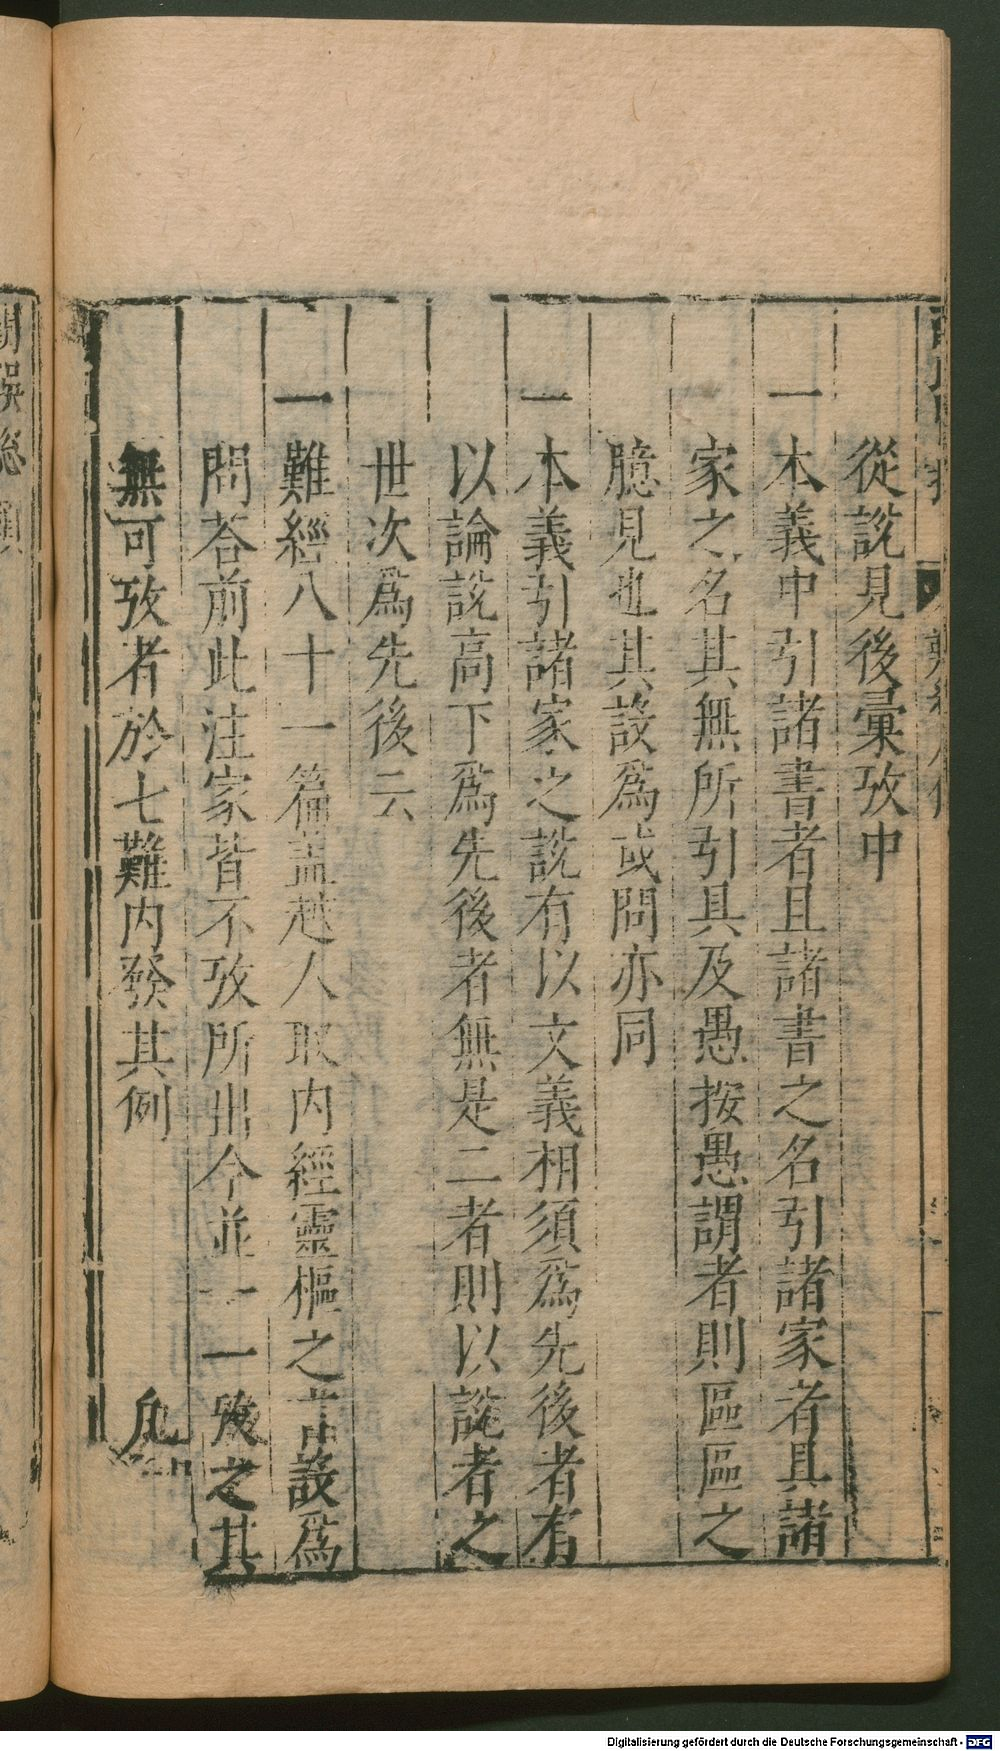 從說見後彙攷中
一本義中引諸書者具諸書之名引諸家者具諸
家之名其無所引具及愚按愚謂者則區區之
臆見也其設爲或問亦同
一本義引諸家之說有以文義相須爲先後者有
以論說高下爲先後者無是二者則以說者之
世次爲先後云
一難經八十一篇盖越人取內經靈樞之言設爲
問荅前此注家皆不攷所出今並一一攷之其
無可攷者於七難內發其例
Digitalisierung gefördert durch die Deutsche Forschungsgemeinschaft - DFG